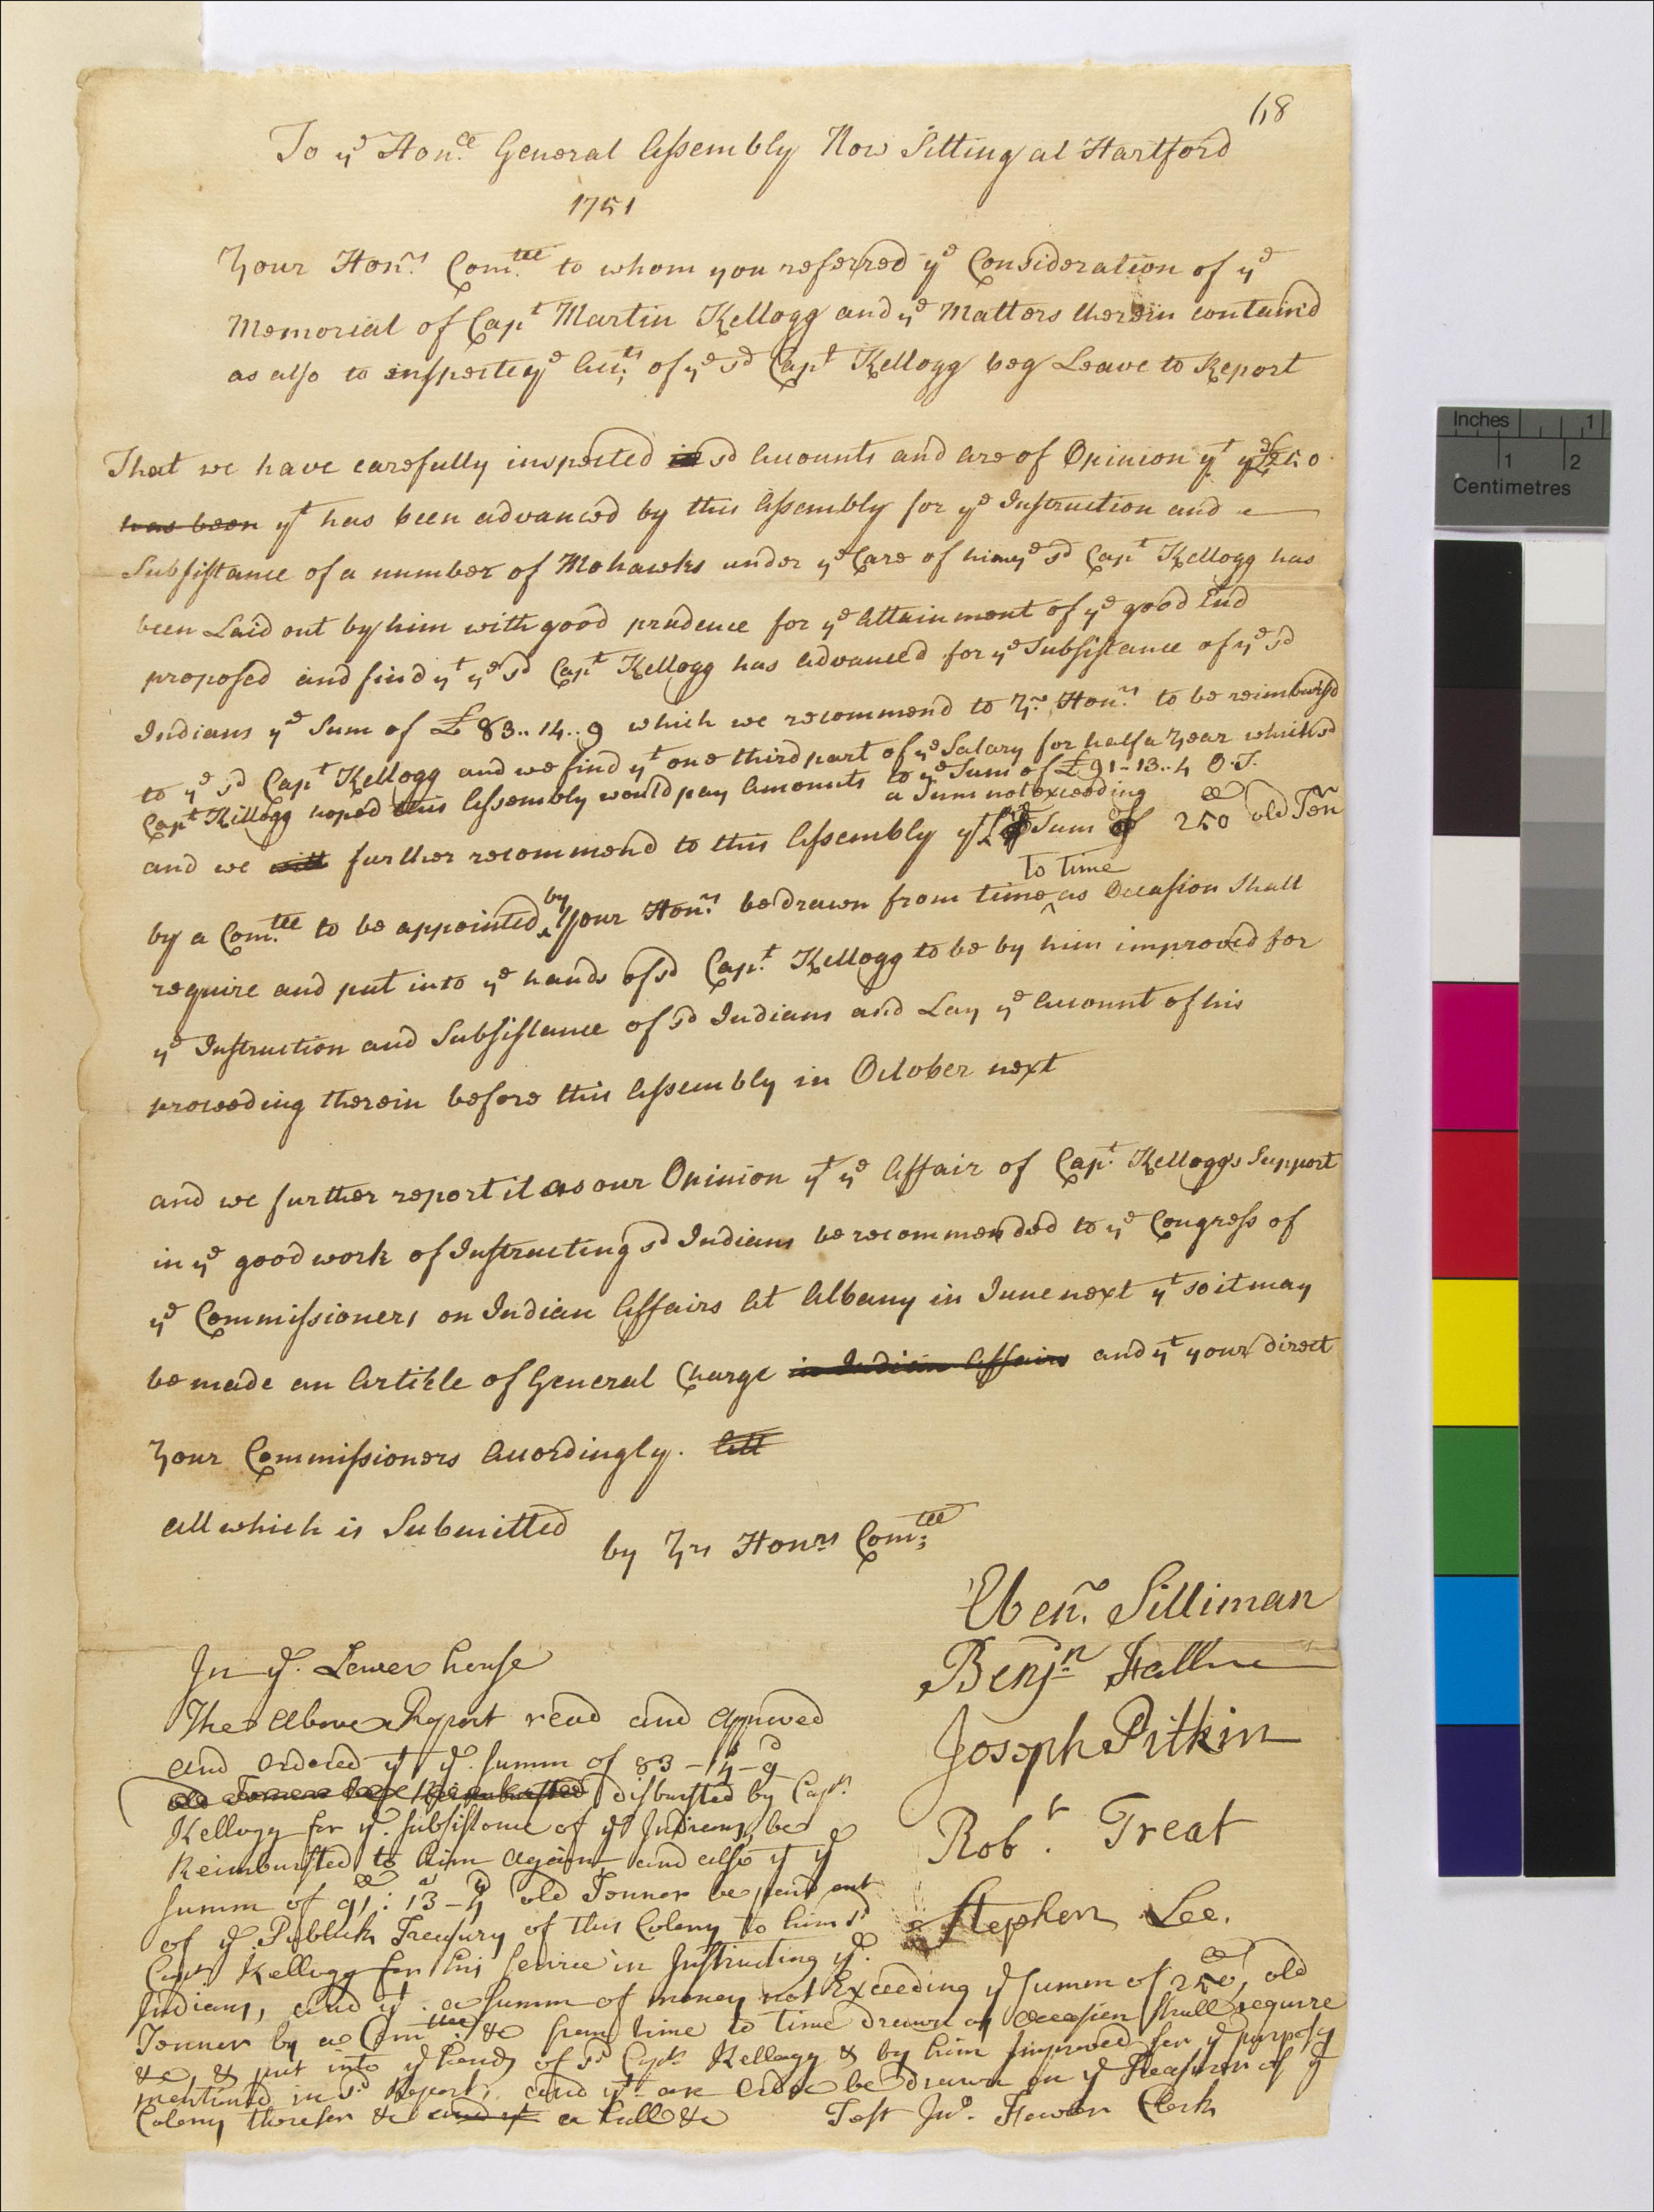 68
To ye Honle General Assembly Now Sitting at Hartford
1751
Your Honrs Comtee to whom you referred ye Consideration of ye
Memorial of Capt Martin Kellogg and ye Matters therein contain'd
as also to inspecte ye Acts of ye sd Capt Kellogg beg Leave to Report
That we have carefully inspected sd Accounts and are of Opinion yt ye
has been yt has been advanced by this Assembly for ye Instruction and
Subsistance of a number of Mohawks under ye Care of him ye sd Capt Kellogg has
been Laid out by him with good prudence for ye Attainment of ye good End
proposed and find yt ye sd Capt Kellogg has advanced for ye Subsistance of ye sd
Indians ye Sum of £83..14..9 which we recommend to Yr Honrs to be reimburs'd
to ye sd Capt Kellogg and we find yt one third part of ye Salary for half a Year which sd
Capt Killogg hoped this Assembly would pay Amounts to ye Sum of £91-13..4 O.T.
a Sum not exceeding
and we will further recommend to this Assembly yt Sum of 250 old Ten
to time
by a Comtee to be appointed by Your Honrs be drawn from time as Occasion Shall
require and put into ye hands of sd Capt Kellogg to be by him improved for
ye Instruction and Subsistance of sd Indians and Lay ye Account of his
proceeding therein before this Assembly in October next
and we further report it as our Opinion yt ye Affair of Capt Kellogg's Support
in ye good work of Instructing sd Indians be recommended to ye Congress of
ye Commissioners on Indian Affairs At Albany in June next yt so it may
be made an Article of General Charge in Indian Affairs and yt your direct
Your Commissioners Accordingly. All
all which is Submitted
by Yrs Honrs Comtee
Ebenr Silliman
Benjn Hall
Joseph Pitkin
Robt Treat
Stephen Lee.
In ye Lower house
The above Report read and approved
and ordered yt ye summ of 83-14-9
old Tenner be Reimbursted disbursted by Capt
Kellogg for ye subsistance of ye Indians, be
Reimbursted to him again, and also yt ye
summ of 91:13-4 old Tenner be paid out
of ye Publick Treasury of this Colony to him sd
Capt Kellogg for his service in Instructing ye
Indians, and yt a summ of money not Exceeding ye summ of 250 old
Tenner by a Comtee &c from time to time drawn as occasion shall require
&c, & put into ye hands of sd Capt Kellogg & by him Improved for ye purposes
mentioned in sd Report, and yt an order be drawn on ye Treasurer of ye
Colony therefor &c and yt a bill &c
Test Jno. Fowler Clerk